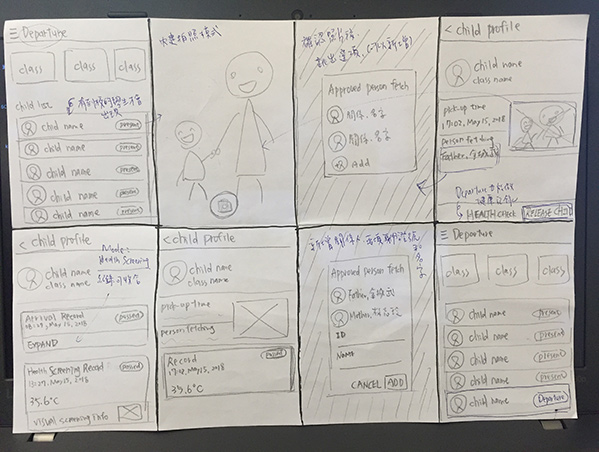 Departure
class
class
class
child list
child name
present
child name
present
child name
present
child name
present
child name
present
快速拍照模式
確認照片後
Approved person fetch
關係, 名字
關係, 名字
Add
< child profile
child name
class name
pick-up time
17:02, May 15, 2018
person fetching
Father,
Departure
HEALTH check
RELEASE CHILD
< child profile
Mode:
Health Screening
child name
class name
Arrival Record
May 15, 2018
passed
EXPAND
Health Screening Record
13:27, May 15, 2018
passed
35.6°C
visual screening info
< child profile
child name
class name
pick-up time
person fetching
Record
17:12, May 15, 2018
passed
35.6°C
Approved person fetch
Father,
Mother,
ID
Name
CANCEL
ADD
Departure
class
class
class
child name
present
child name
present
child name
present
child name
present
child name
Departure